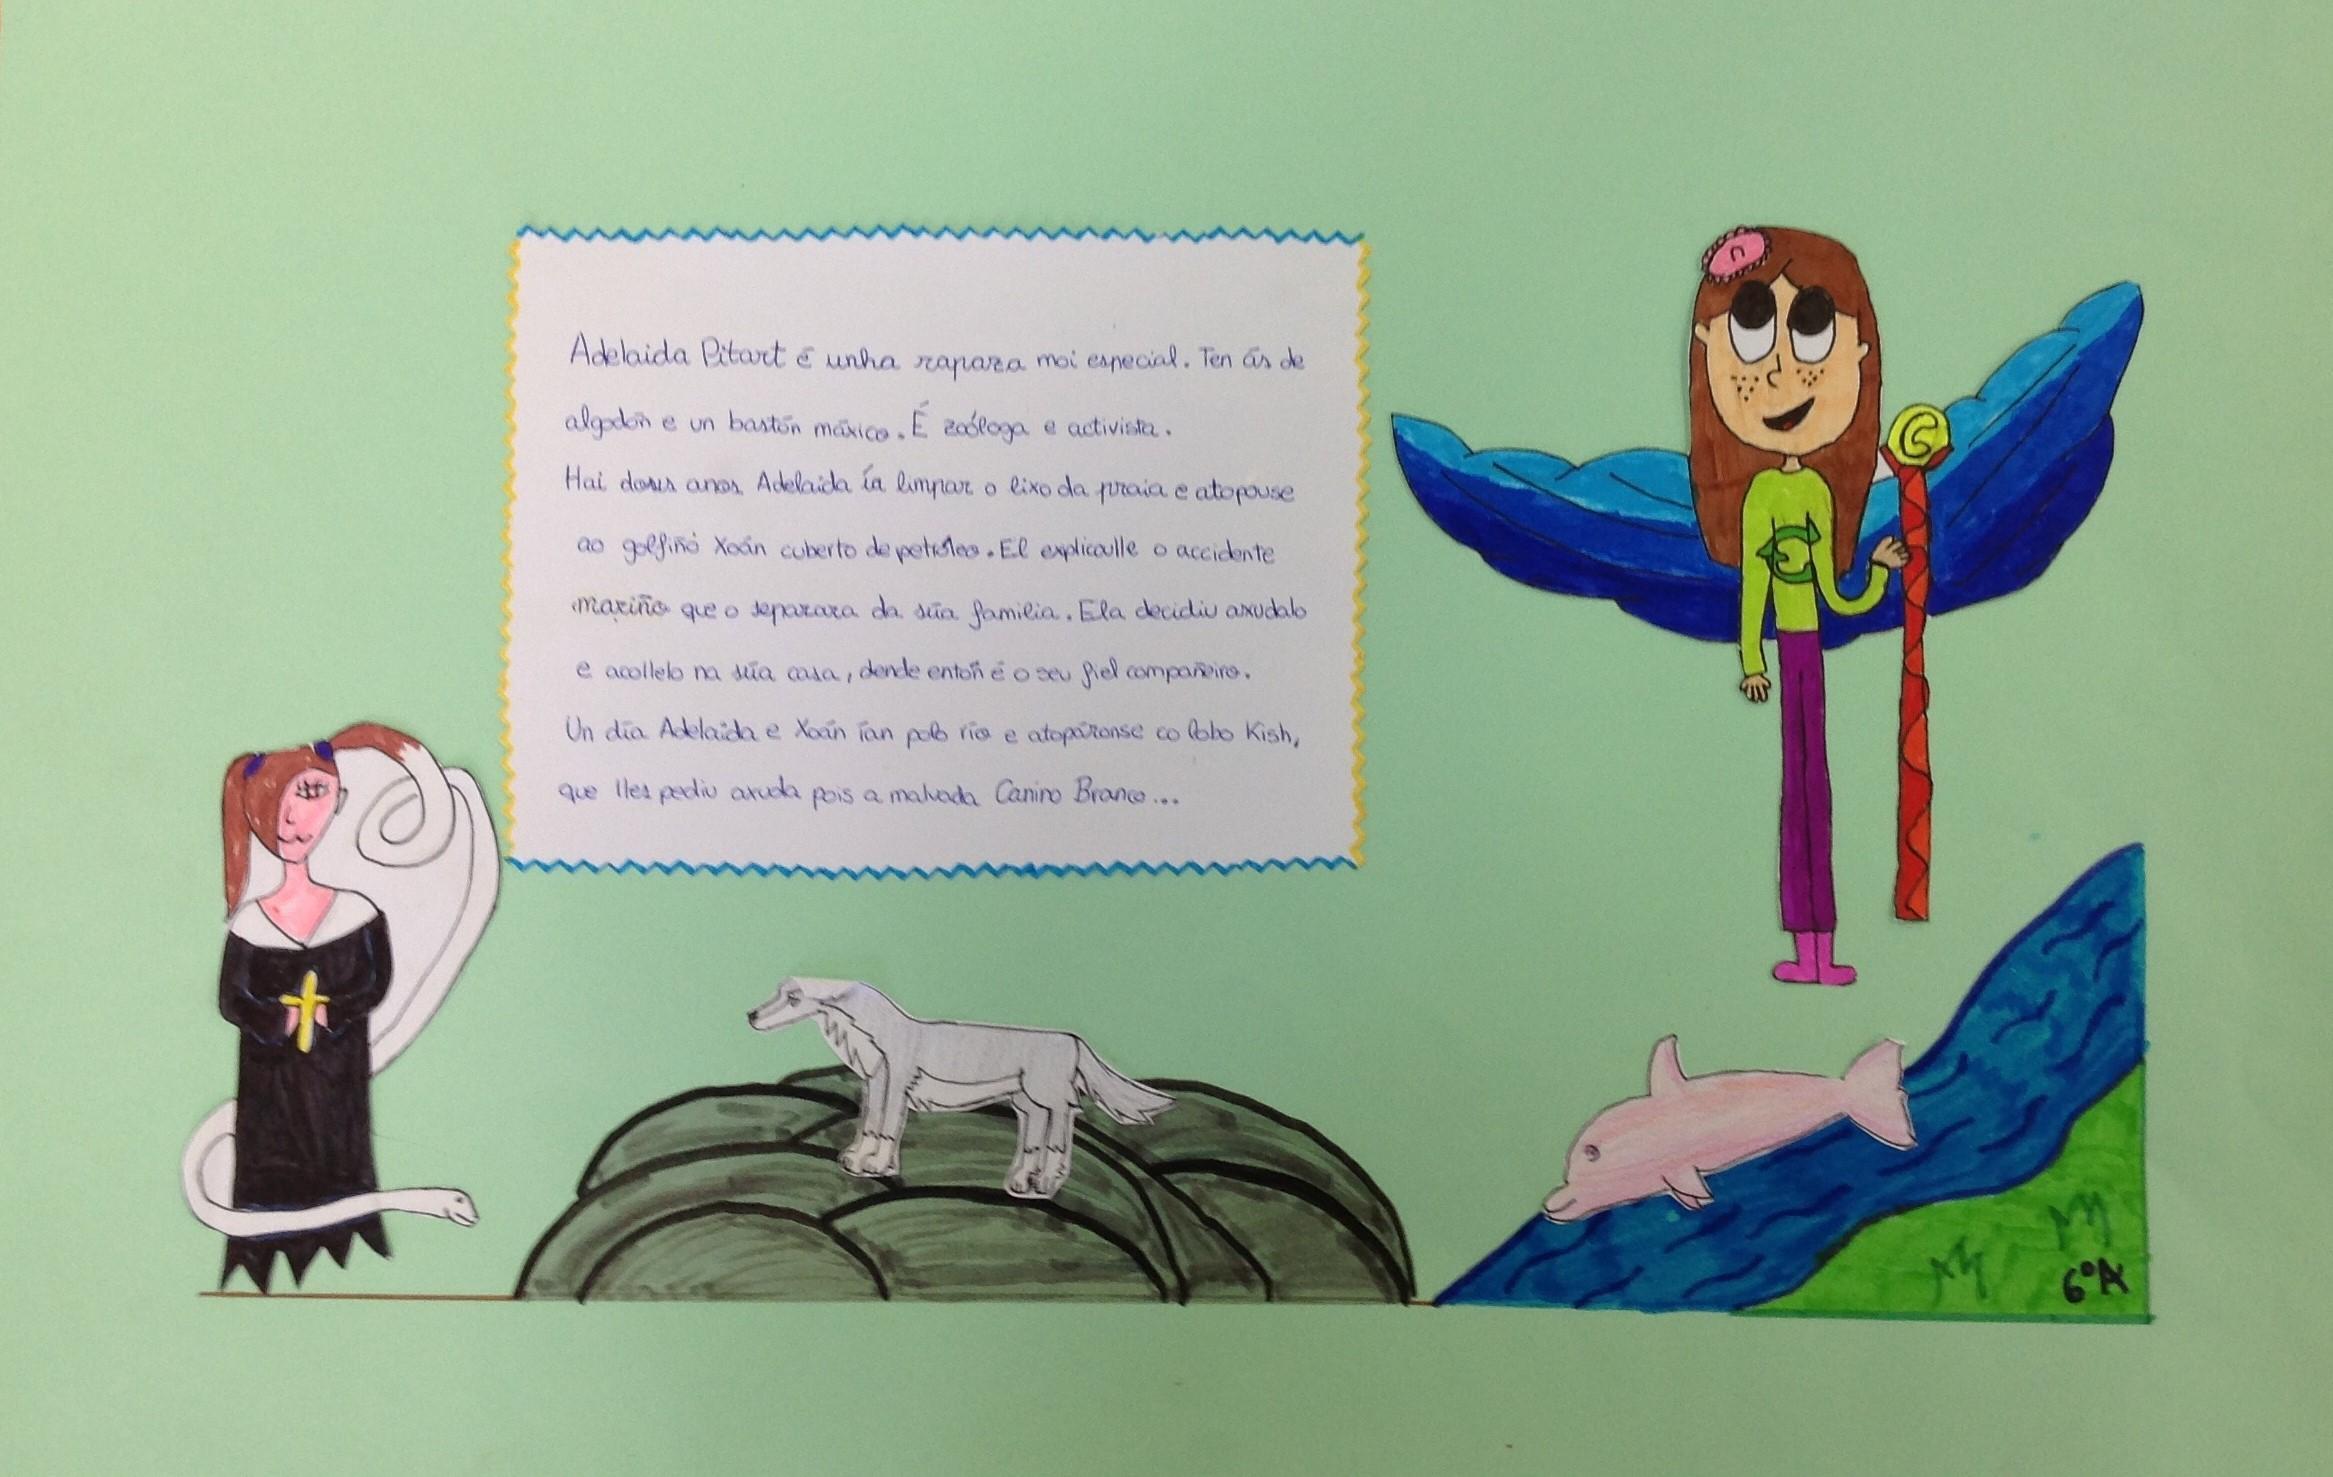 Adelaida Pitart é unha rapaza moi especial. Ten ás de
algodón e un bastón máxico. É zoóloga e activista.
Hai anos Adelaida ía limpar o lixo da praia e atopouse
ao golfiño Xoán cuberto de petróleo. El explicoulle o accidente
mariño que o separara da súa familia. Ela decidiu axudalo
e acollelo na súa casa, dende entón é o seu fiel compañeiro.
Un día Adelaida e Xoán ían polo río e atopáronse co lobo Kish,
que lles pediu axuda pois a malvada Canino Branco...
n
C
6ºA